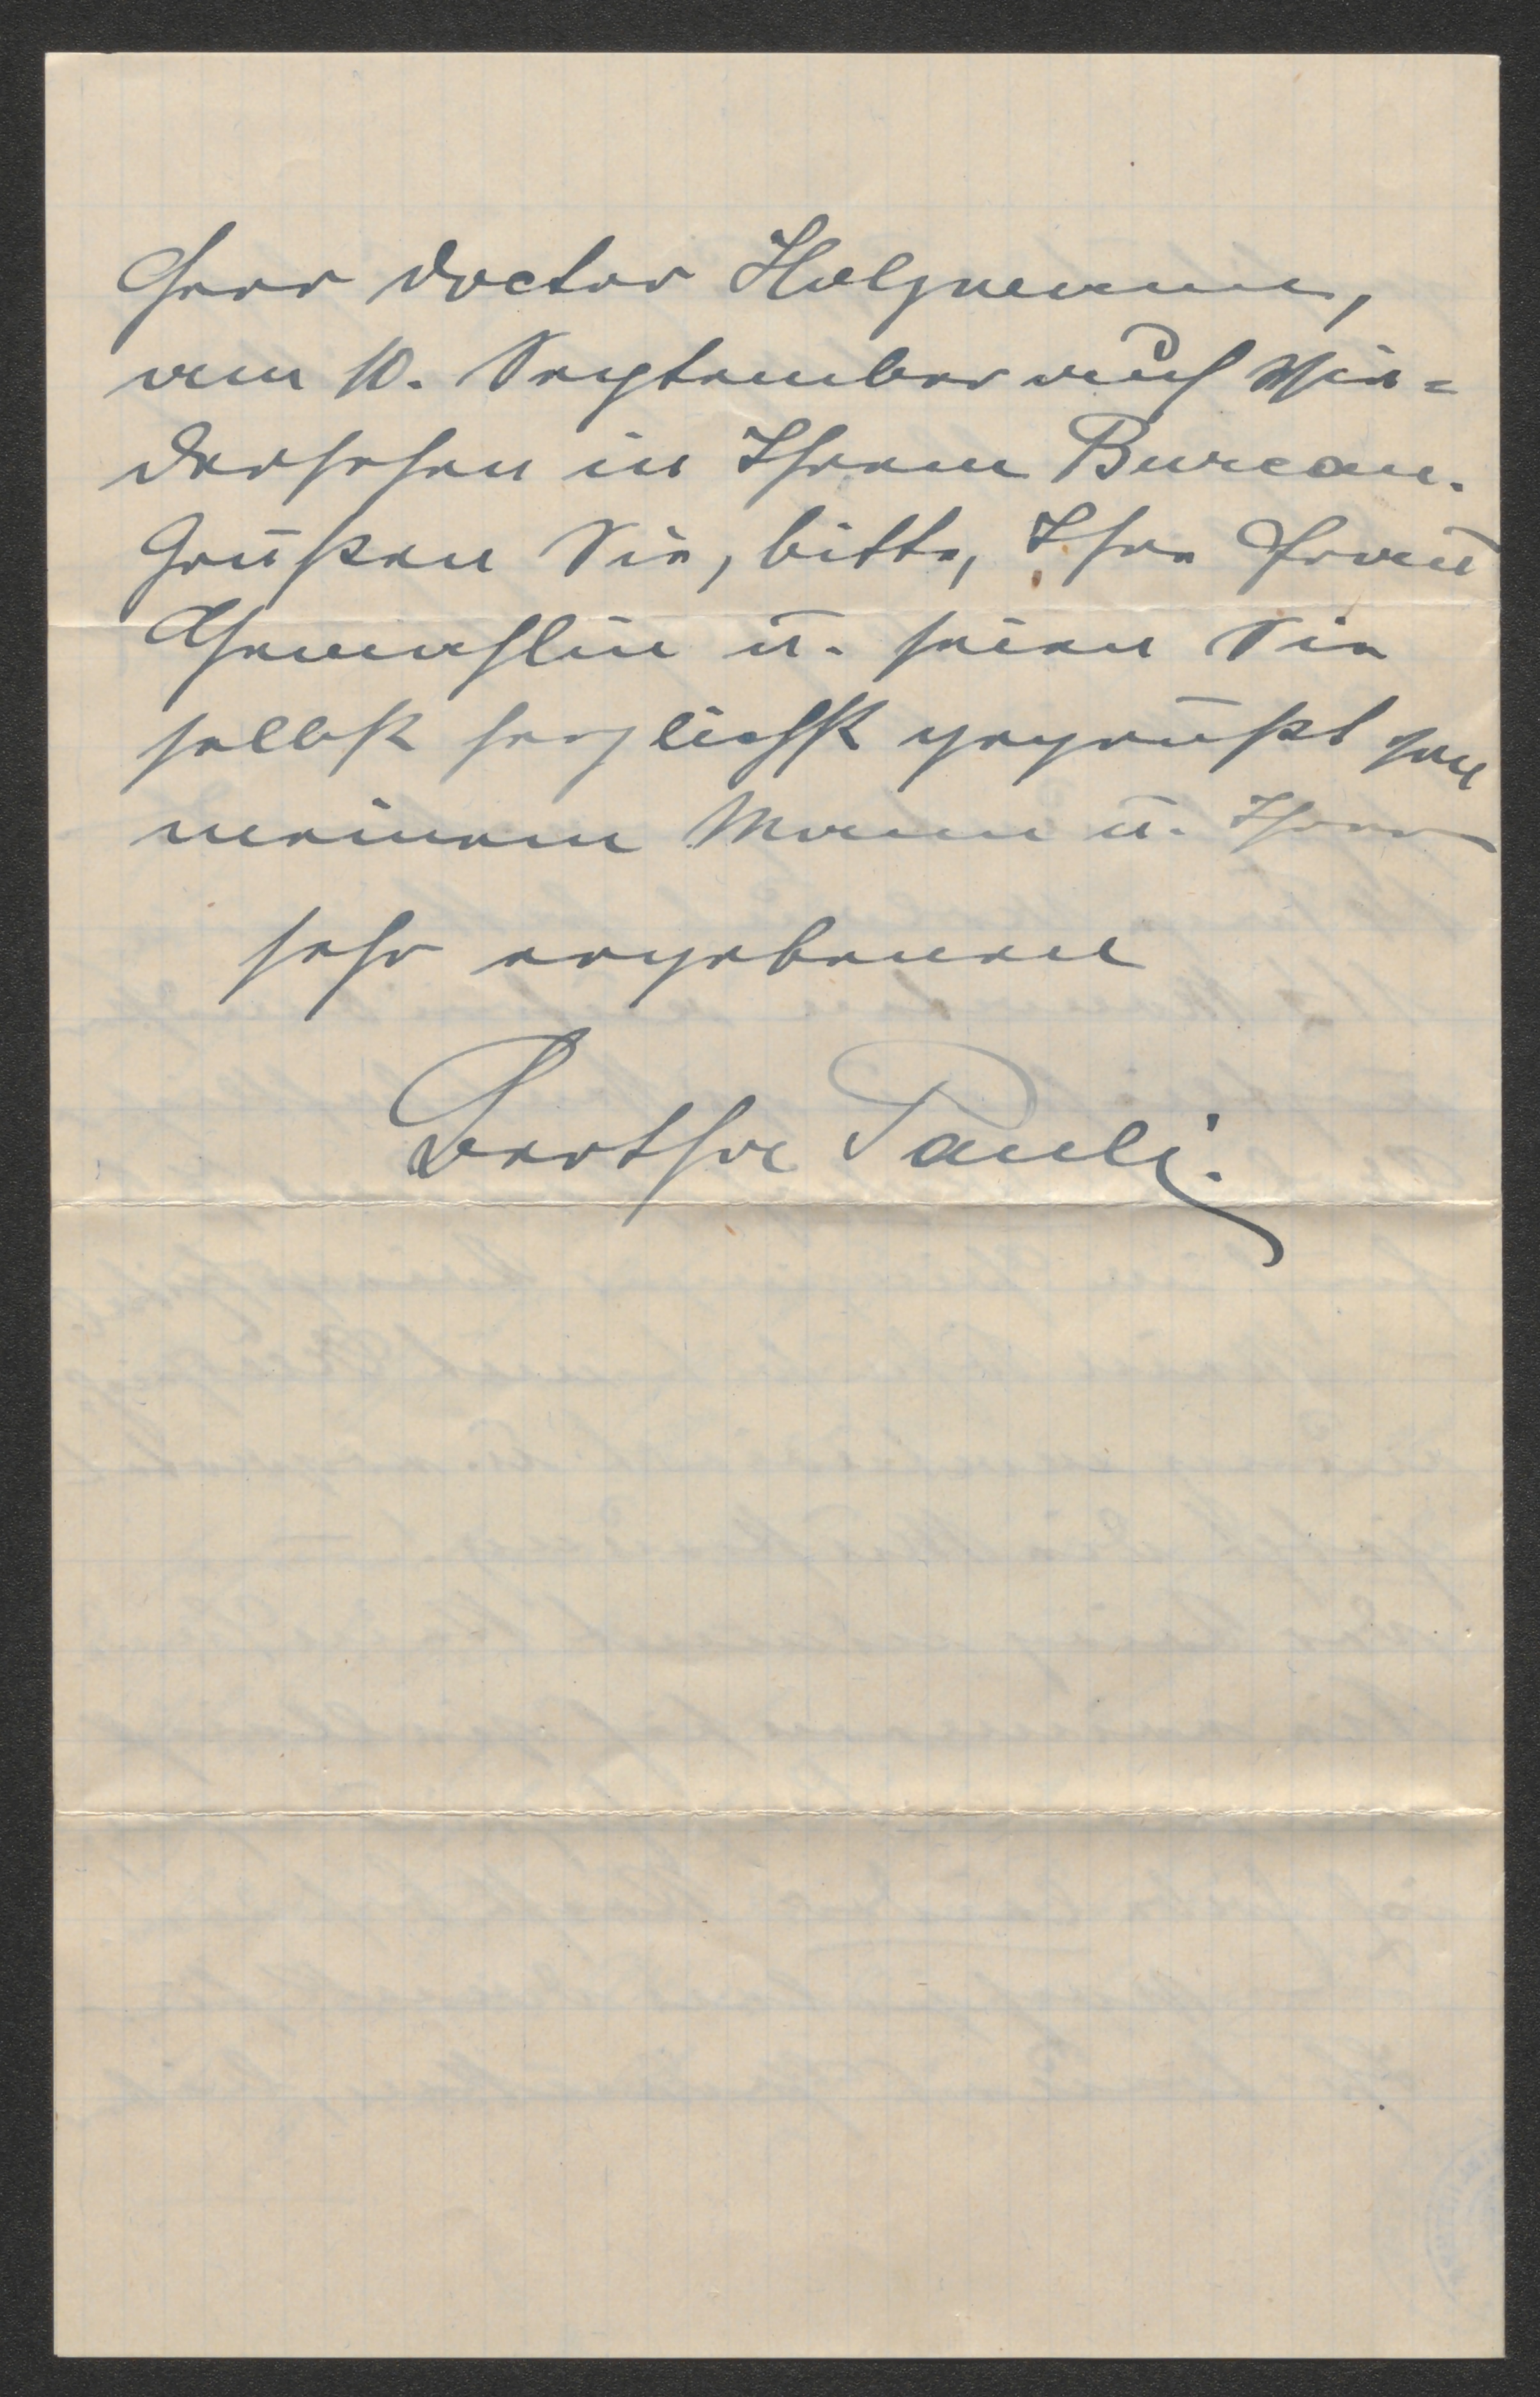 Herr Doctor Holzmann,
am 10. September auf Wie=
dersehen in Ihrem Bureau.
Grüßen Sie, bitte, Ihre Frau
Gemahlin u. seien Sie
selbst herzlichst gegrüßt von
meinem Mann u. Ihrer
sehr ergebenen
Bertha Pauli.